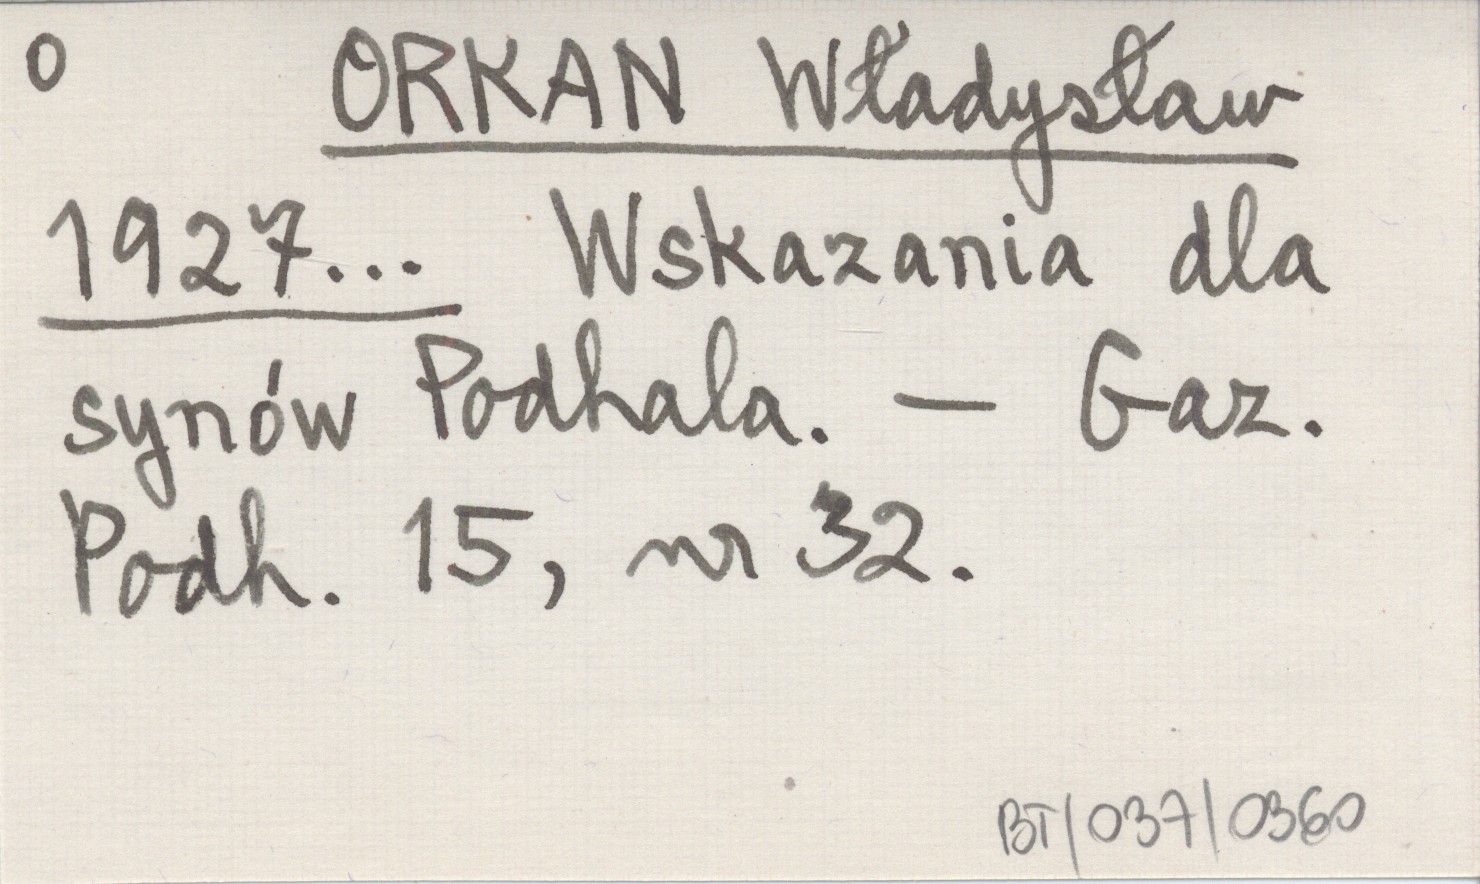 O
ORKAN Władysław
1927... Wskazania dla
synów Podhala. — Gaz.
Podh. 15, nr 32.
BT/037/0360